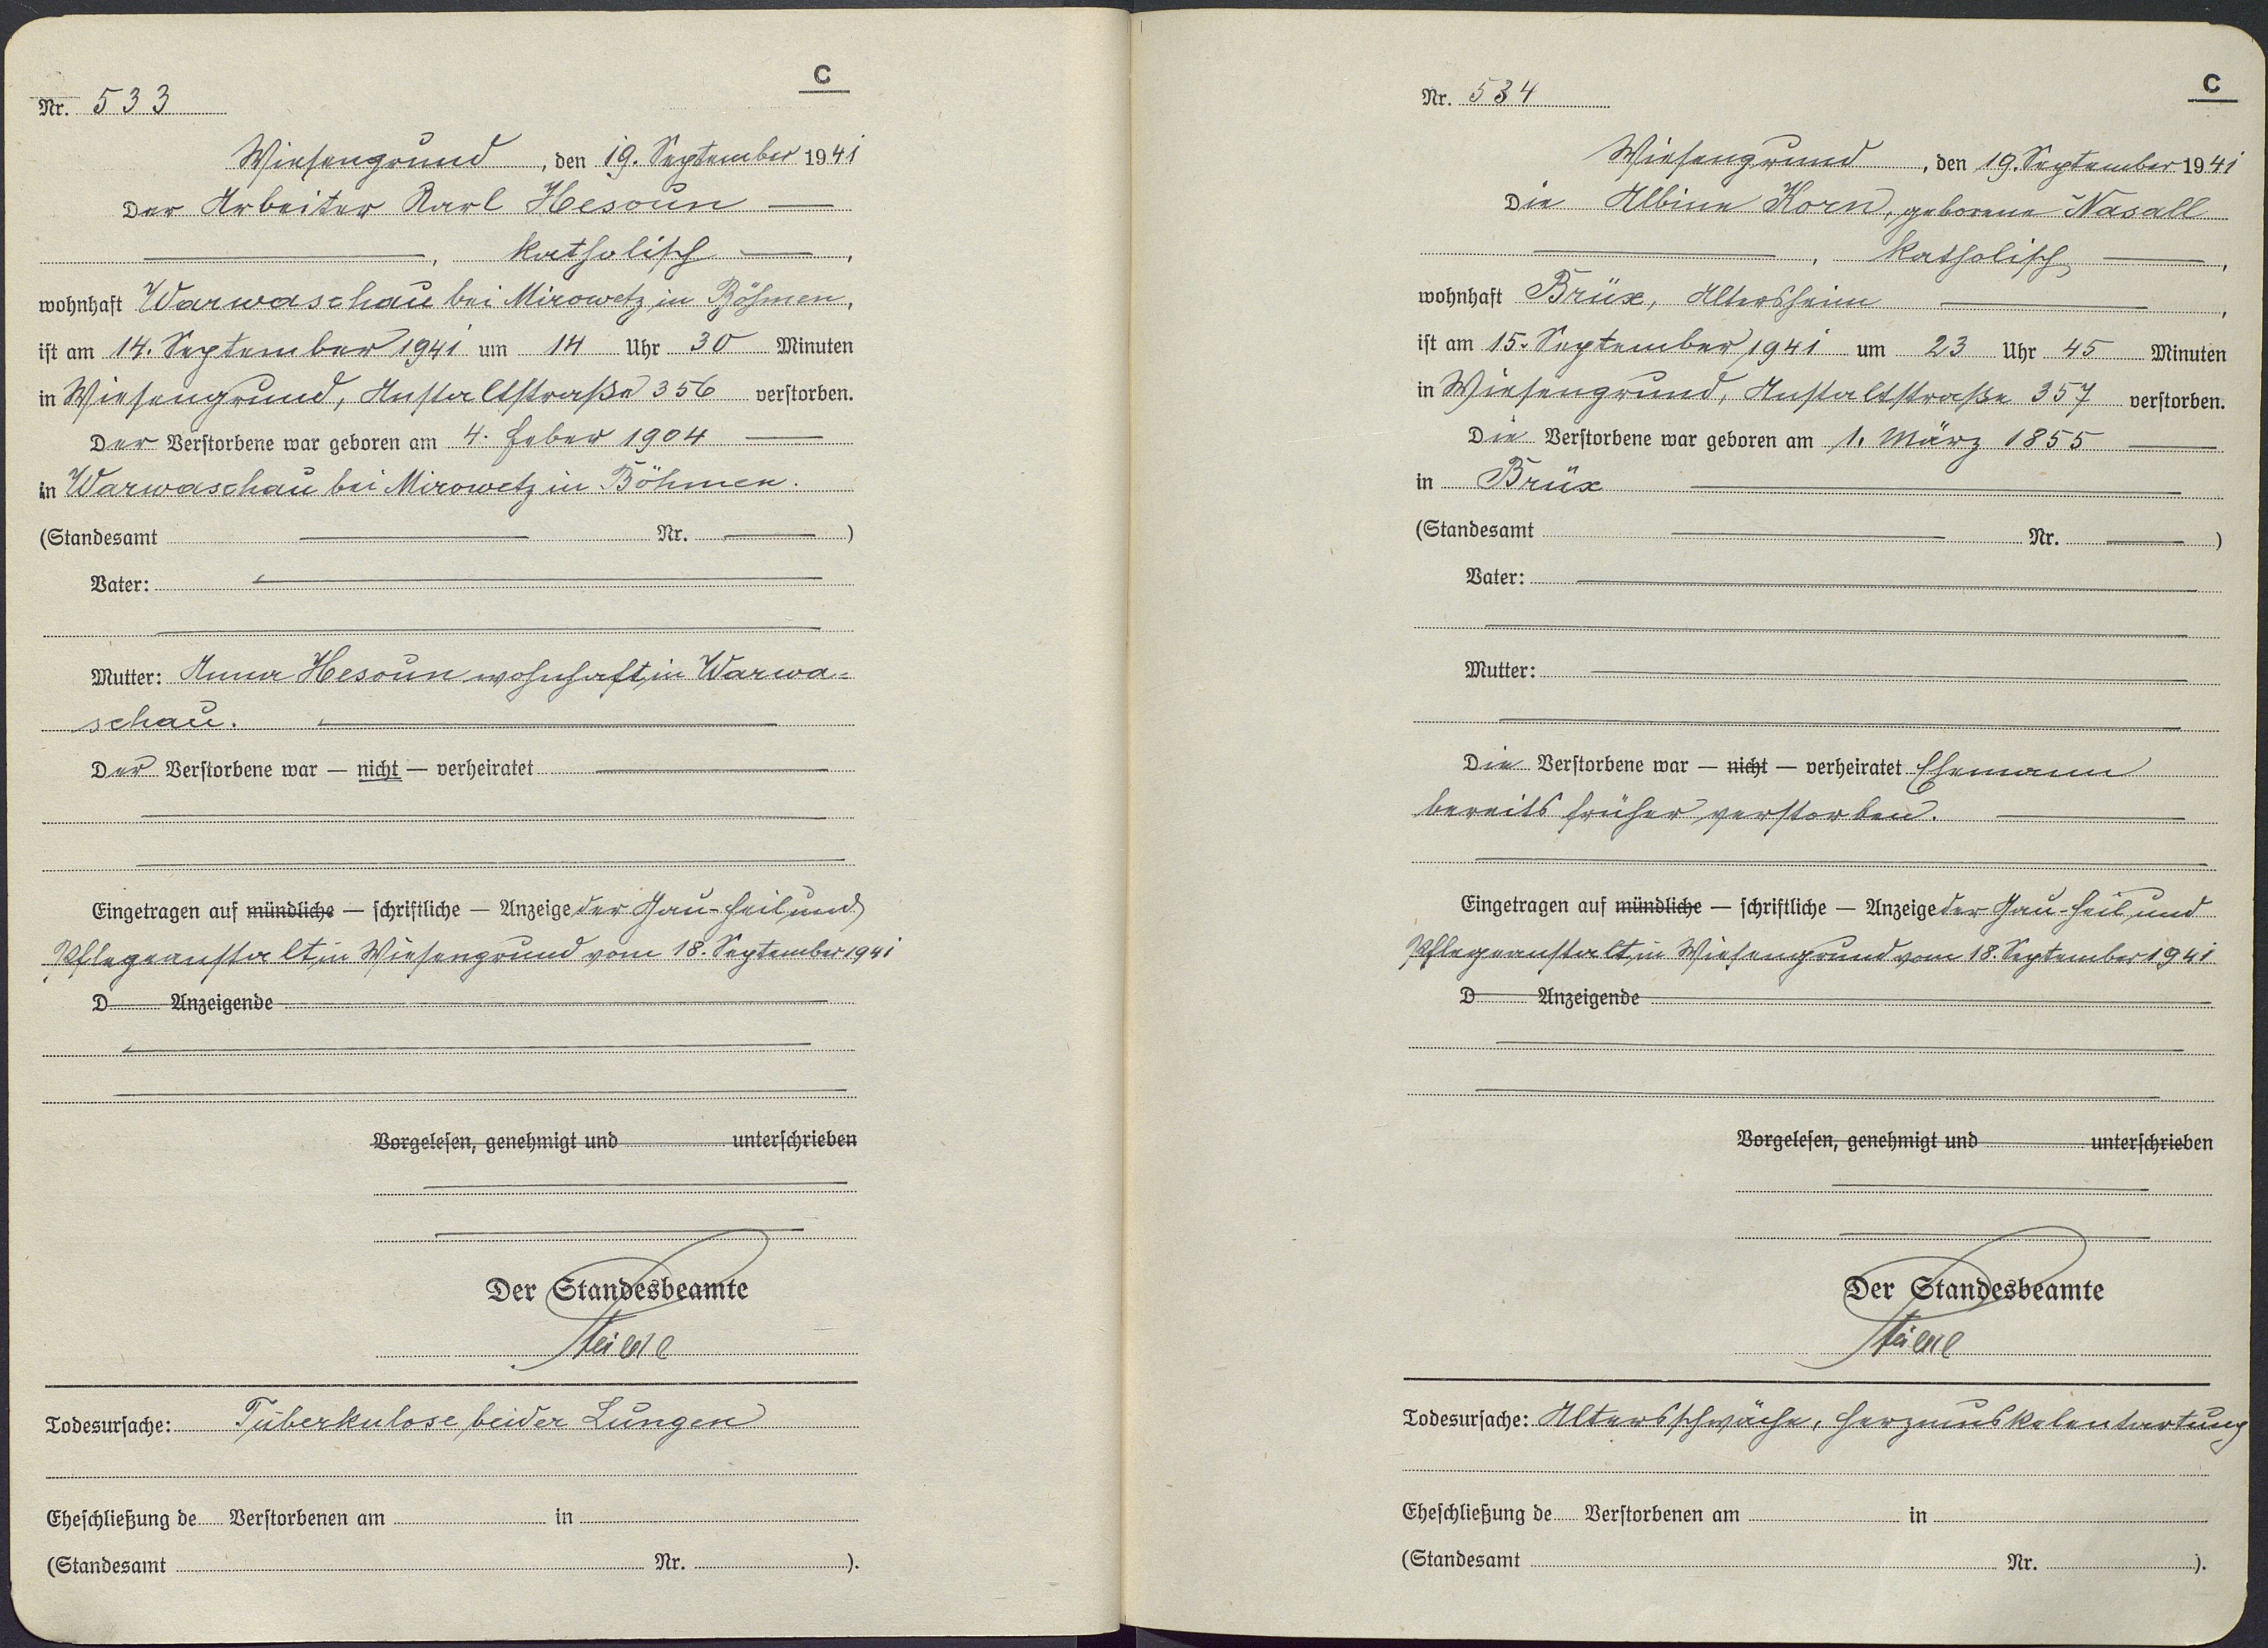 C
Nr. 533
Wiesengrund, den 19. September 1941
Der Arbeiter Karl Hesoun
, katholisch,
wohnhaft Warwaschau bei Mirowetz in Böhmen,
ist am 14. September 1941 um 14 Uhr 30 Minuten
in Wiesengrund, Anstaltstraße 356 verstorben.
Der Verstorbene war geboren am 4. Feber 1904
in Warwaschau bei Mirowetz in Böhmen.
(Standesamt Nr. )
Vater:
Mutter: Anna Hesoun wohnhaft in Warwa-
schau.
Der Verstorbene war — nicht — verheiratet
Eingetragen auf mündliche — schriftliche — Anzeige der Gau-Heil und
Pflegeanstalt in Wiesengrund vom 18. September 1941
D Anzeigende
Vorgelesen, genehmigt und unterschrieben
Der Standesbeamte
Todesursache: Tuberkulose beider Lungen
Eheschließung de Verstorbenen am in
(Standesamt Nr. ).
C
Nr. 534
Wiesengrund, den 19. September 1941
Die Albine Korn, geborene Nasall
, katholisch,
wohnhaft Brüx, Altersheim,
ist am 15. September 1941 um 23 Uhr 45 Minuten
in Wiesengrund, Anstaltstraße 357 verstorben.
Die Verstorbene war geboren am 1. März 1855
in Brüx
(Standesamt Nr. )
Vater:
Mutter:
Die Verstorbene war — nicht — verheiratet Ehemann
bereits früher verstorben.
Eingetragen auf mündliche — schriftliche — Anzeige der Gau-Heil und
Pflegeanstalt in Wiesengrund vom 18. September 1941
D Anzeigende
Vorgelesen, genehmigt und unterschrieben
Der Standesbeamte
Todesursache: Altersschwäche, Herzmuskelentartung
Eheschließung de Verstorbenen am in
(Standesamt Nr. ).